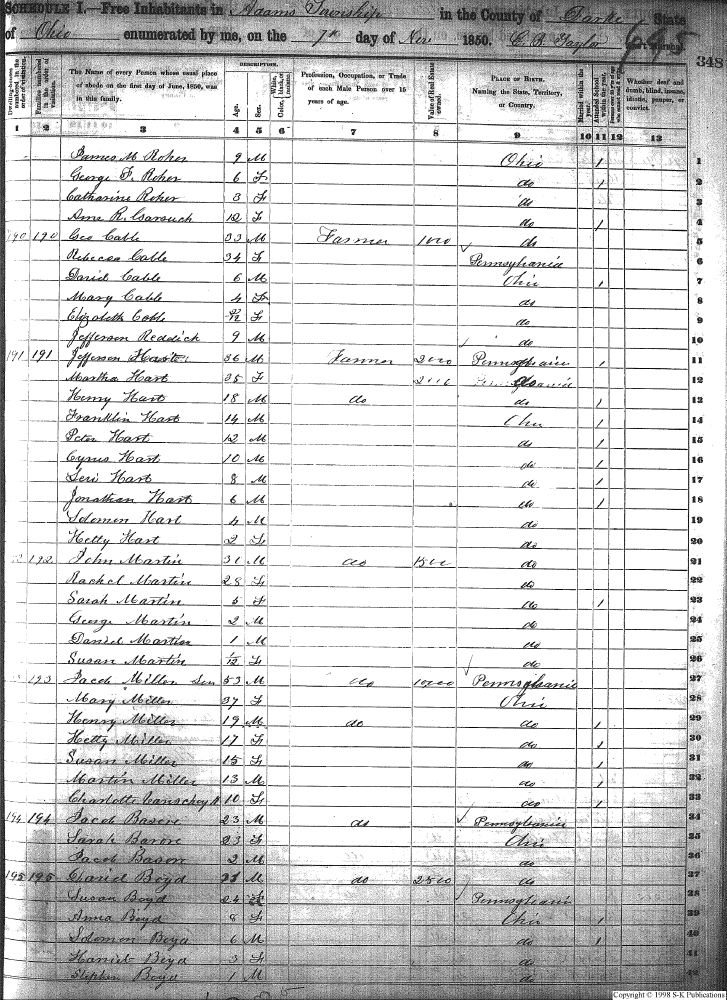 SCHEDULE I.—Free Inhabitants in Adams Township in the County of Darke State
of Ohio enumerated by me, on the 7th day of Nov 1850. C. B. Taylor
695
348
Dwelling-houses numbered in the order of visitation.
Families numbered in the order of visitation.
The Name of every Person whose usual place of abode on the first day of June, 1850, was in this family.
DESCRIPTION.
Age.
Sex.
Color, White, black, or mulatto.
Profession, Occupation, or Trade of each Male Person over 15 years of age.
Value of Real Estate owned.
PLACE OF BIRTH. Naming the State, Territory, or Country.
Married within the year.
Attended School within the year.
Whether deaf and dumb, blind, insane, idiotic, pauper, or convict.
1 2 3 4 5 6 7 8 9 10 11 12 13
James M Roher 9 M Ohio 1 1
George F. Roher 6 F do 1 2
Catharine Roher 3 F do 3
Ame R. 12 F do 1 4
190 190 Geo Cable 33 M Farmer 1000 do 5
Rebecca Cable 34 F Pennsylvania 6
David Cable 6 M Ohio 1 7
Mary Cable 4 F do 8
Elizabeth Cable F do 9
Jefferson Reddick 9 M do 10
191 191 Jefferson Hart 36 M Farmer 2000 Pennsylvania 1 11
Martha Hart 35 F 2000 do 12
Henry Hart 18 M do do 1 13
Franklin Hart 14 M Ohio 1 14
Peter Hart 12 M do 1 15
Cyrus Hart 10 M do 1 16
Levi Hart 8 M do 1 17
Jonathan Hart 6 M do 1 18
Solomon Hart 4 M do 19
Hetty Hart 2 F do 20
192 John Martin 31 M do 1500 do 21
Rachel Martin 28 F do 22
Sarah Martin 5 F do 1 23
George Martin 2 M do 24
Daniel Martin 1 M do 25
Susan Martin 1/12 F do 26
193 Jacob Miller Sen 53 M do 10000 Pennsylvania 27
Mary Miller 37 F Ohio 28
Henry Miller 19 M do do 1 29
Hetty Miller 17 F do 1 30
Susan Miller 15 F do 1 31
Martin Miller 13 M do 1 32
Charlotte 10 F do 1 33
194 194 Jacob Basore 23 M do Pennsylvania 34
Sarah Basore 23 F Ohio 35
Jacob Bason 2 M do 36
195 195 David Boyd 31 M do 2500 do 37
Susan Boyd 24 F Pennsylvani 38
Anna Boyd 8 F Ohio 1 39
Solomon Boyd 6 M do 1 40
Harriet Boyd 3 F do 41
Stephen Boyd 1 M do 42
Copyright © 1998 S-K Publications